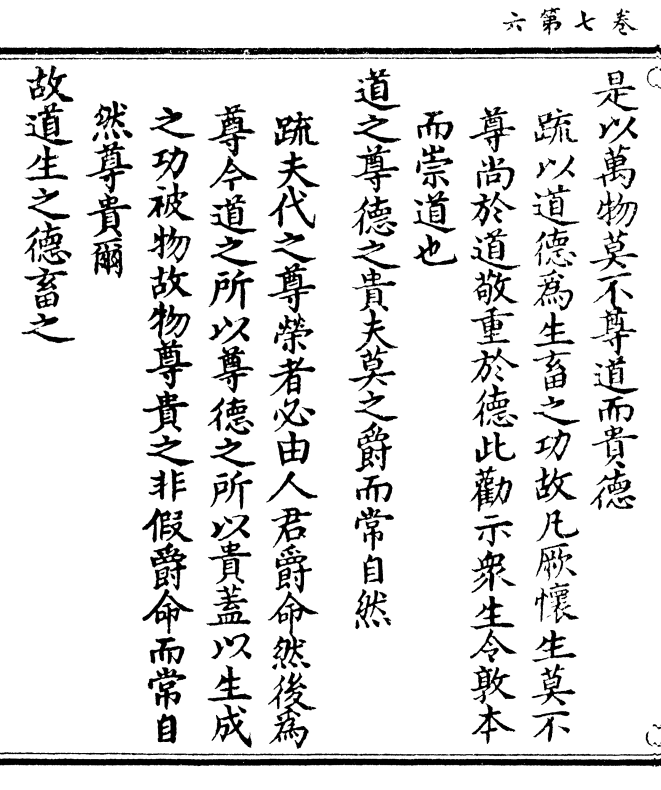 卷七第六
是以萬物莫不尊道而貴德
疏以道德爲生畜之功故凡厥懷生莫不
尊尚於道敬重於德此勸示衆生令敦本
而崇道也
道之尊德之貴夫莫之爵而常自然
疏夫代之尊榮者必由人君爵命然後為
尊今道之所以尊德之所以貴蓋以生成
之功被物故物尊貴之非假爵命而常自
然尊貴爾
故道生之德畜之